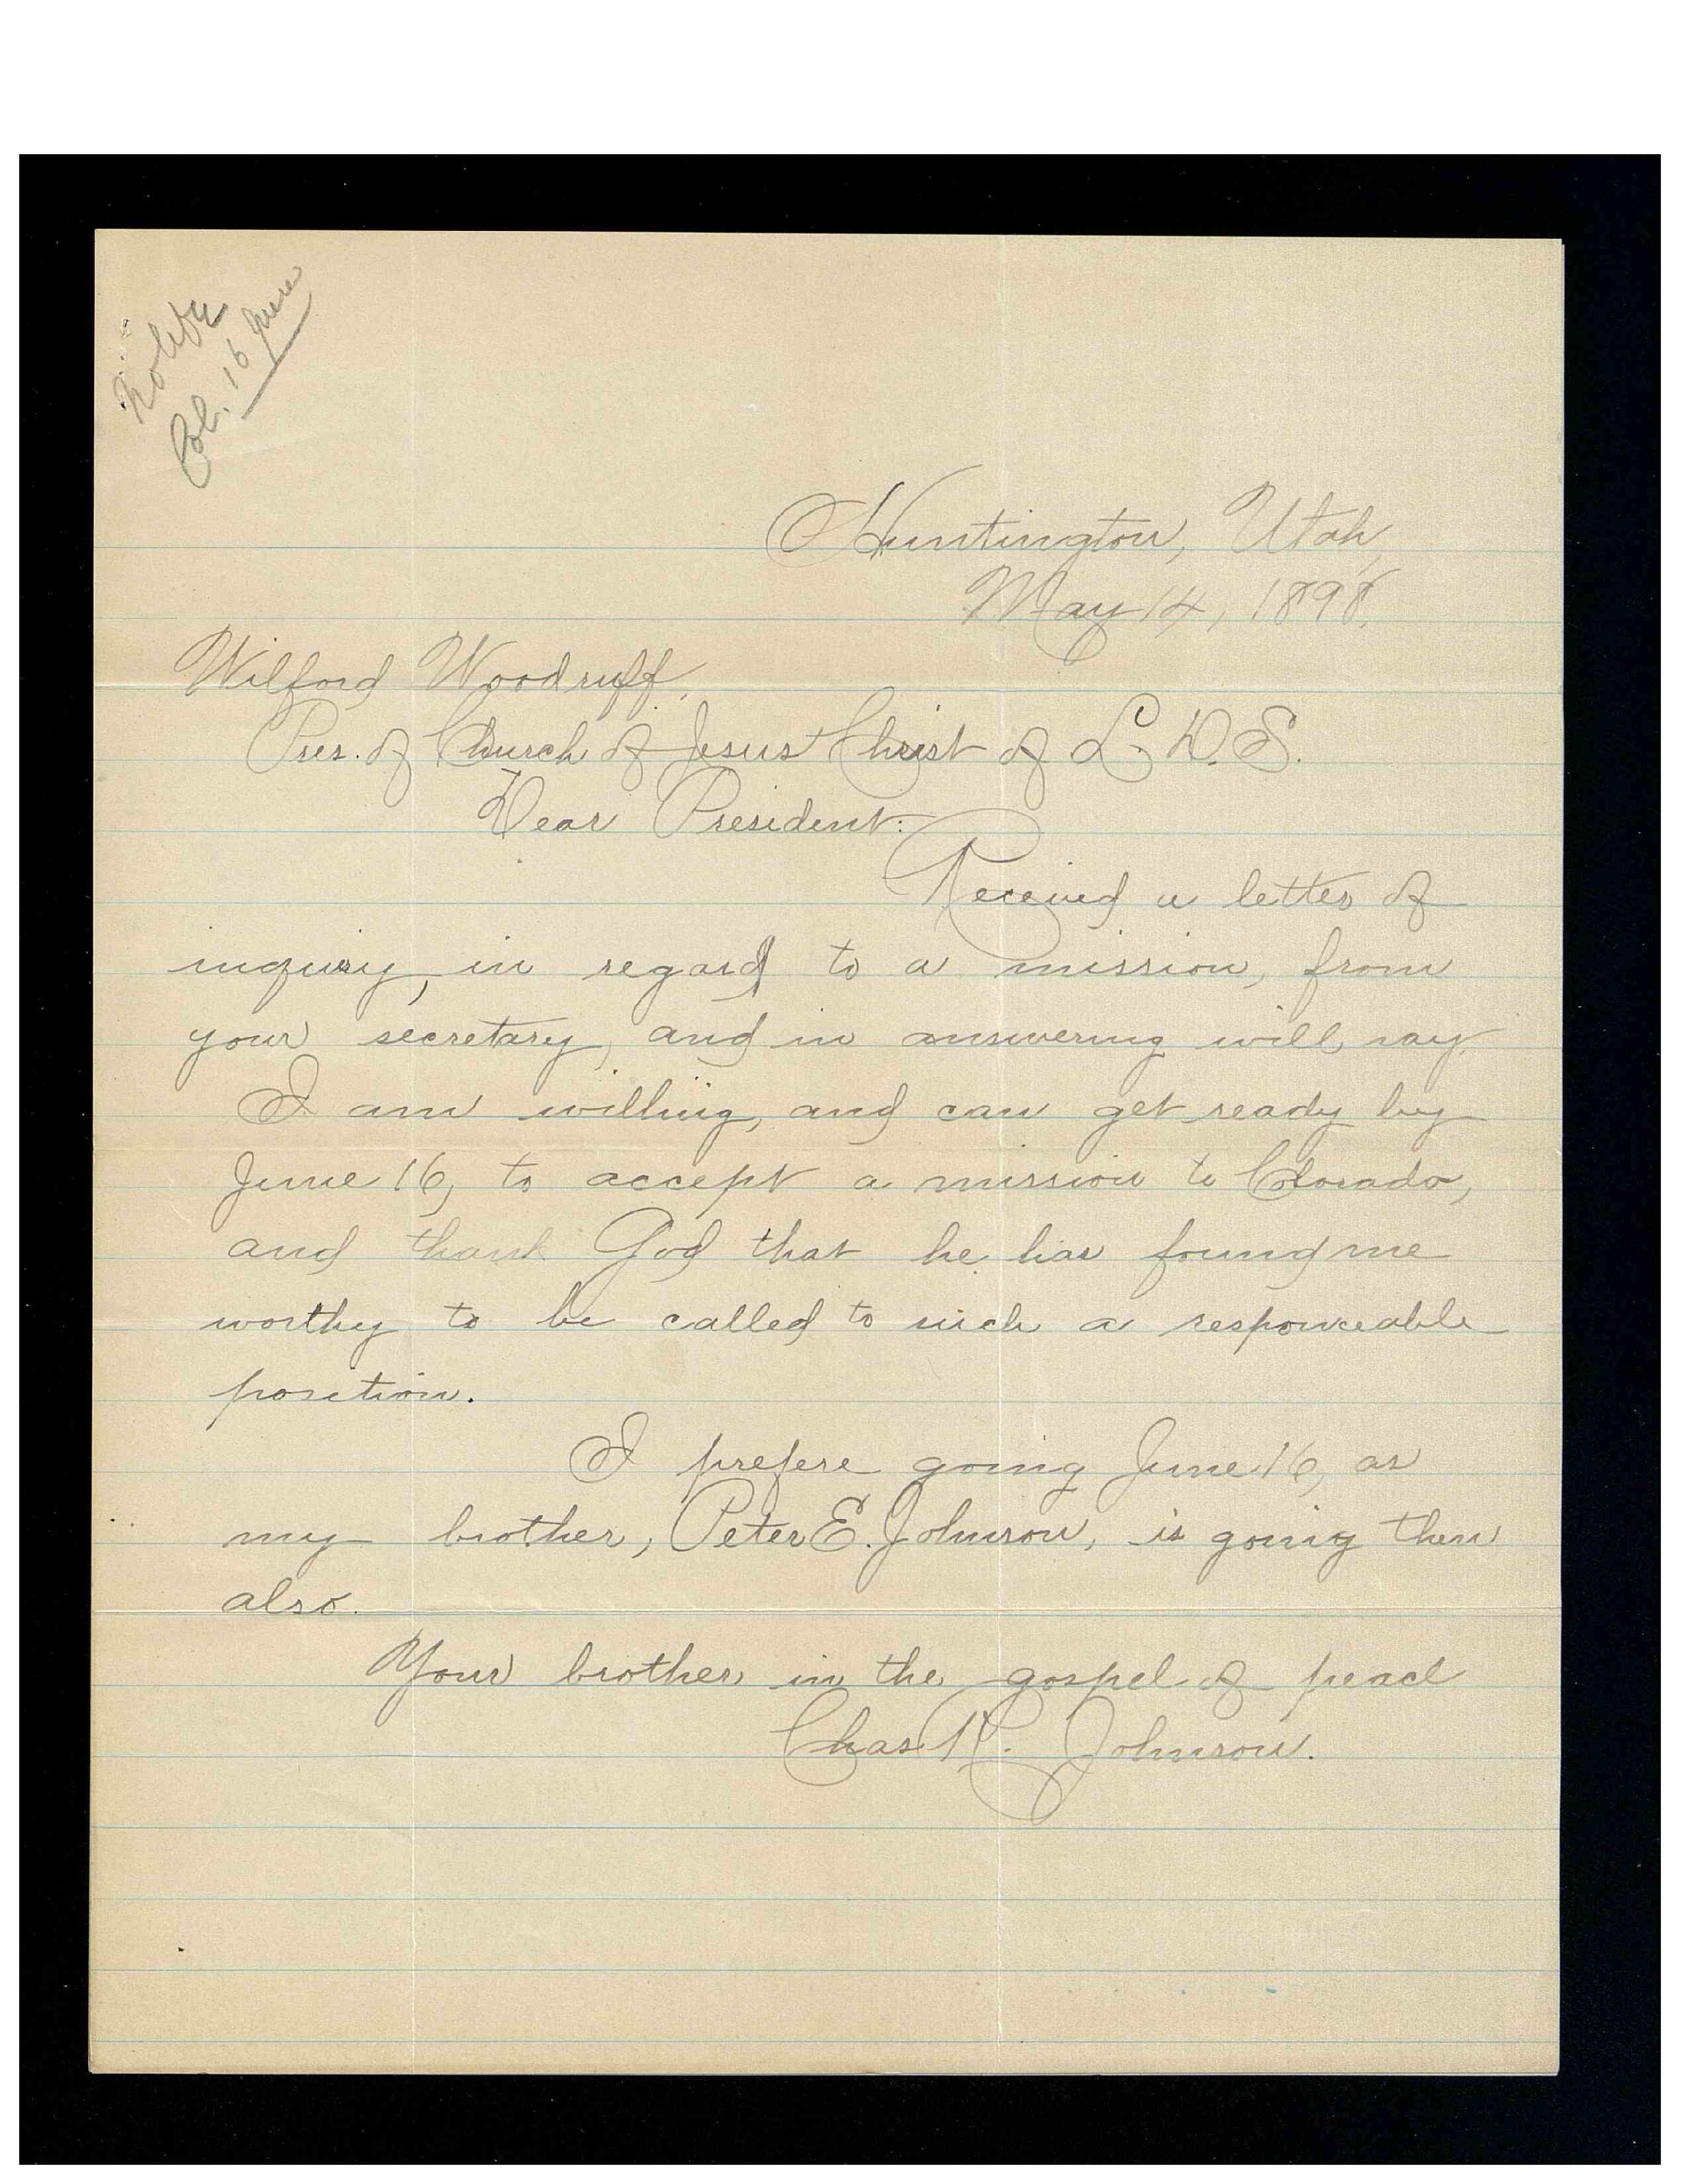 Notify
Col. 16 June
Huntington, Utah,
May 14, 1898.
Wilford Woodruff,
Pres. of Church of Jesus Christ of L. D. S.
Dear President:
Received a letter of
inquiry, in regard to a mission, from
your secretary, and in answering will say,
I am willing, and can get ready by
June 16, to accept a mission to Colorado,
and thank God that he has found me
worthy to be called to such a responceable
position.
I prefere going June 16, as
my brother, Peter E. Johnson, is going then
also.
Your brother in the gospel of peace
Chas. R. Johnson.